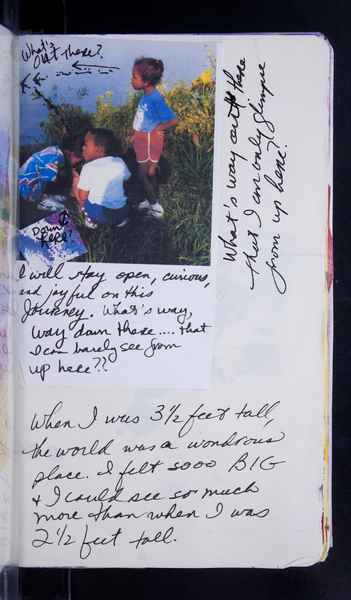 What's
Out There?
Down
here?
I will stay open, curious,
and joyful on this
Journey. What's way,
way down there.... that
I can barely see from
up here??
What's way out there
that I can only glimpse
from up here?
When I was 3½ feet tall,
the world was a wondrous
place. I felt sooo BIG
& I could see so much
more than when I was
2½ feet tall.